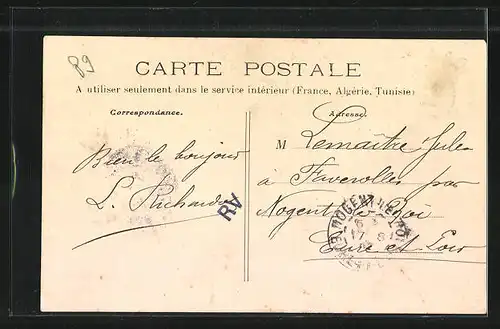 89
CARTE POSTALE
A utiliser seulement dans le service intérieur (France, Algérie, Tunisie)
Correspondance.
Adresse.
Bien le bonjour
L. Richard
RA
M Lemaître Jules
à Faverolles par
Nogent le Roi
Eure et Loir
NOGENT LE ROI